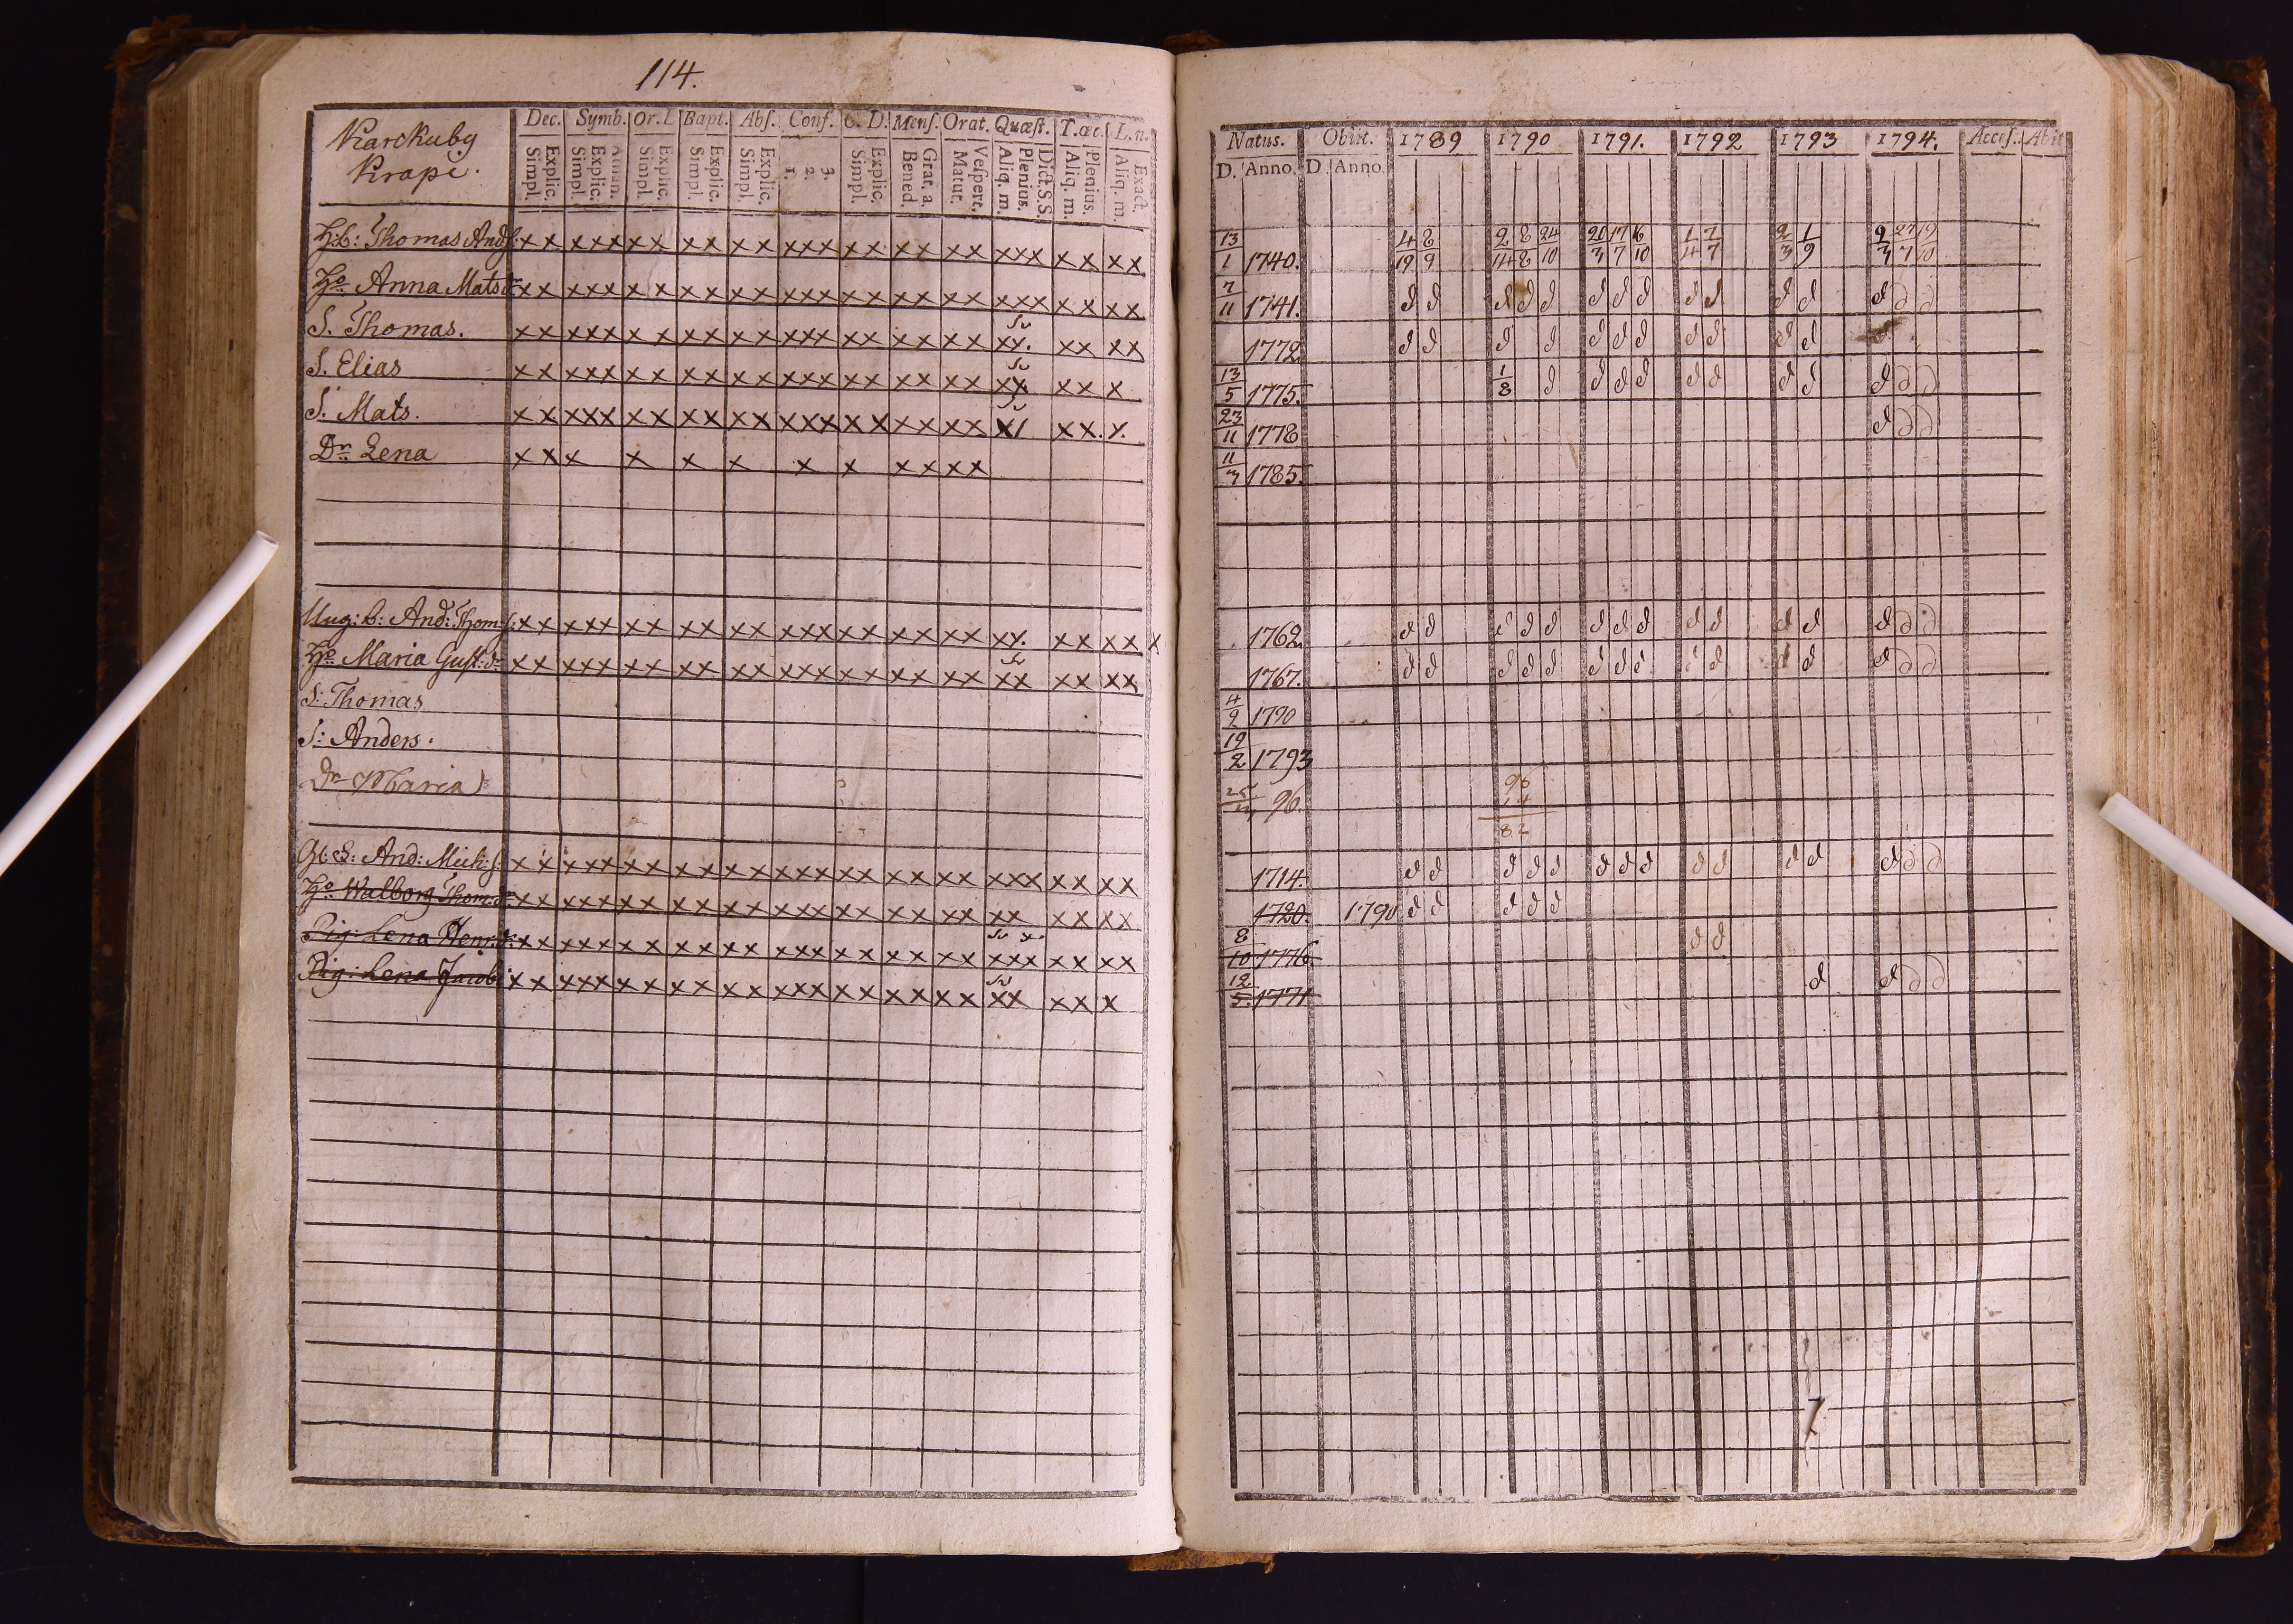 114.
Karckuby
Krapi.
Dec. Symb. Or. L Bapt. Abſ. Conf. C. D. Menſ. Orat. Quæſt. T. œc. L. n.
Explic. Simpl. Explic. Simpl. Explic. Simpl. Explic. Simpl. Explic. Simpl. 3. 2. 1. Explic. Simpl. Grat. a. Bened. Veſpert. Matut. Dict. S.S. Plenius. Aliq. m. Plenius. Aliq. m. Exact. Aliq. m.
H:b: Thomas And:ſ: x x x x x x x x x x x x x x x x x x x x x x x x x x x
Ho Anna Matsdr x x x x x x x x x x x x x x x x x x x x x x x x x x x
S. Thomas. x x x x x x x x x x x x x x x x x x x x x x x x x x
S. Elias x x x x x x x x x x x x x x x x x x x x x x x x x
S. Mats. x x x x x x x x x x x x x x x x x x x x x x x x
Dr. Lena x x x x x x x x x x x x
Ung: b: And: Thom:ſ: x x x x x x x x x x x x x x x x x x x x x x x x x x x
Ho Maria Guſt:dr x x x x x x x x x x x x x x x x x x x x x x x x x x
S: Thomas
S: Anders.
Dr Maria
Gl: B: And: Mich:ſ: x x x x x x x x x x x x x x x x x x x x x x x x x x x
Ho Walborg Thom:dr x x x x x x x x x x x x x x x x x x x x x x x x x x
Pig: Lena Henr:dr: x x x x x x x x x x x x x x x x x x x x x x x x x x x
Pig: Lena Jacob: x x x x x x x x x x x x x x x x x x x x x x x x x
Natus. Obiit. 1789 1790 1791. 1792 1793 1794. Acceſ. Abit
D. Anno. D. Anno.
13/1 1740. 4/19 8/9 2/14 8/8 24/10 20/3 17/7 6/10 1/4 2/7 2/3 1/9 9/3 27/7 19/10
7/11 1741. d d d d d d d d d d d d d d d
1772 d d d d d d d d d d d
13/5 1775. 1/8 d d d d d d d d d d d
23/11 1778 d d d
11/3 1785.
1762 d d d d d d d d d d d d d d d
1767. d d d d d d d d d d d d d d d
4/9 1790
19/2 1793
96.
96
14
82
1714. d d d d d d d d d d d d d d d
1720. 1790 d d d d d
8/10 1776. d d
12/5. 1771 d d d d